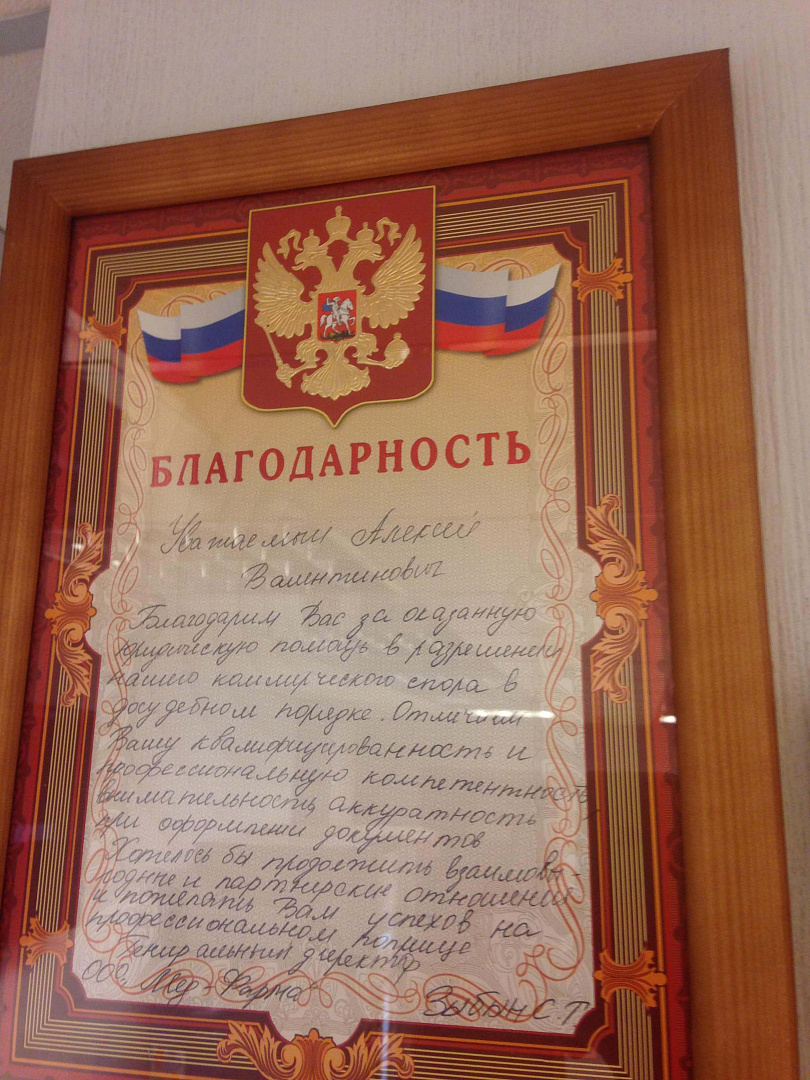 БЛАГОДАРНОСТЬ
Уважаемый Алексей
Валентинович
Благодарим Вас за оказанную
юридическую помощь в разрешении
нашего коммерческого спора в
досудебном порядке. Отличаем
Вашу квалифицированность и
профессиональную компетентность,
внимательность, аккуратность
при оформлении документов
Хотелось бы продолжить взаимовы-
годные и партнирские отношения
и пожелать Вам успехов на
профессиональном поприще
Генеральный директор
ООО "Мед-Фарма"
Зыбин С.Г.